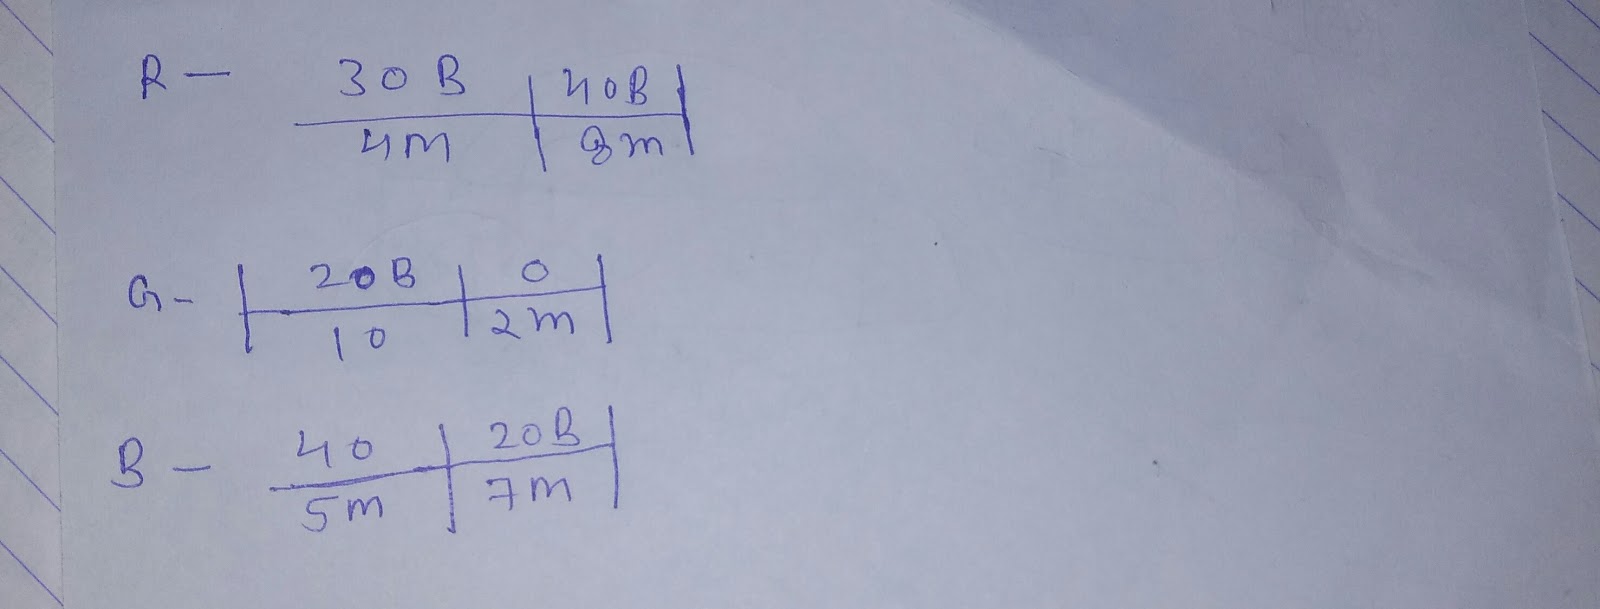 R - 30B | 40B |
4m | 8m |
G - | 20B | 0 |
10 | 2m |
B - 40 | 20B |
5m | 7m |